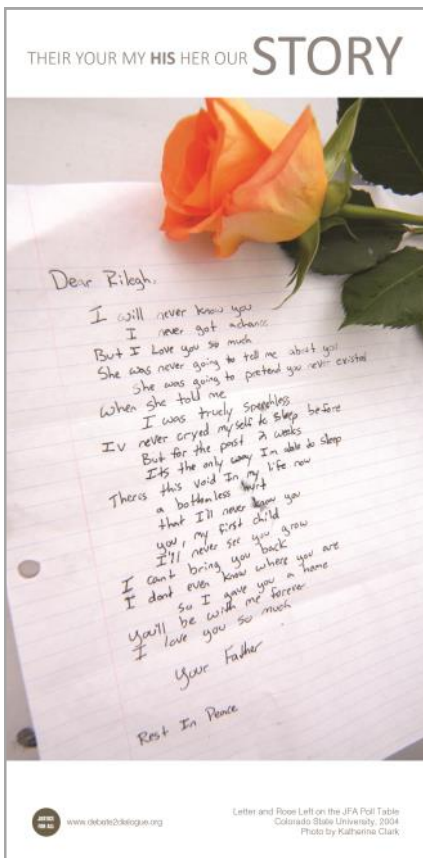 THEIR YOUR MY HIS HER OUR STORY
Dear Rilegh,
I will never know you
I never got a chance
But I Love you so much
She was never going to tell me about you
She was going to pretend you never existed
when she told me
I was truely speechless
Iv never cryed myself to sleep before
But for the past 2 weeks
Its the only way Im able to sleep
Theres this void In my life now
a bottomless hurt
that I'll never know you
you, my first child
I'll never see you grow
I cant bring you back
I dont even know where you are
so I gave you a home
you'll be with me forever
I love you so much
Your Father
Rest In Peace
JUSTICE
FOR ALL
www.debate2dialogue.org
Letter and Rose Left on the JFA Poll Table
Colorado State University, 2004
Photo by Katherine Clark